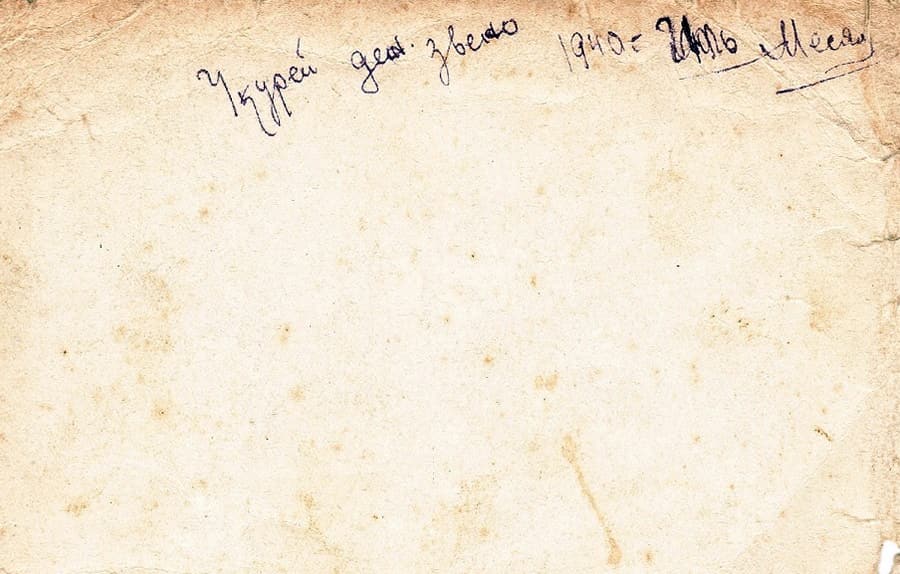 Укурей ден. звено 1940 = Июль Месяц